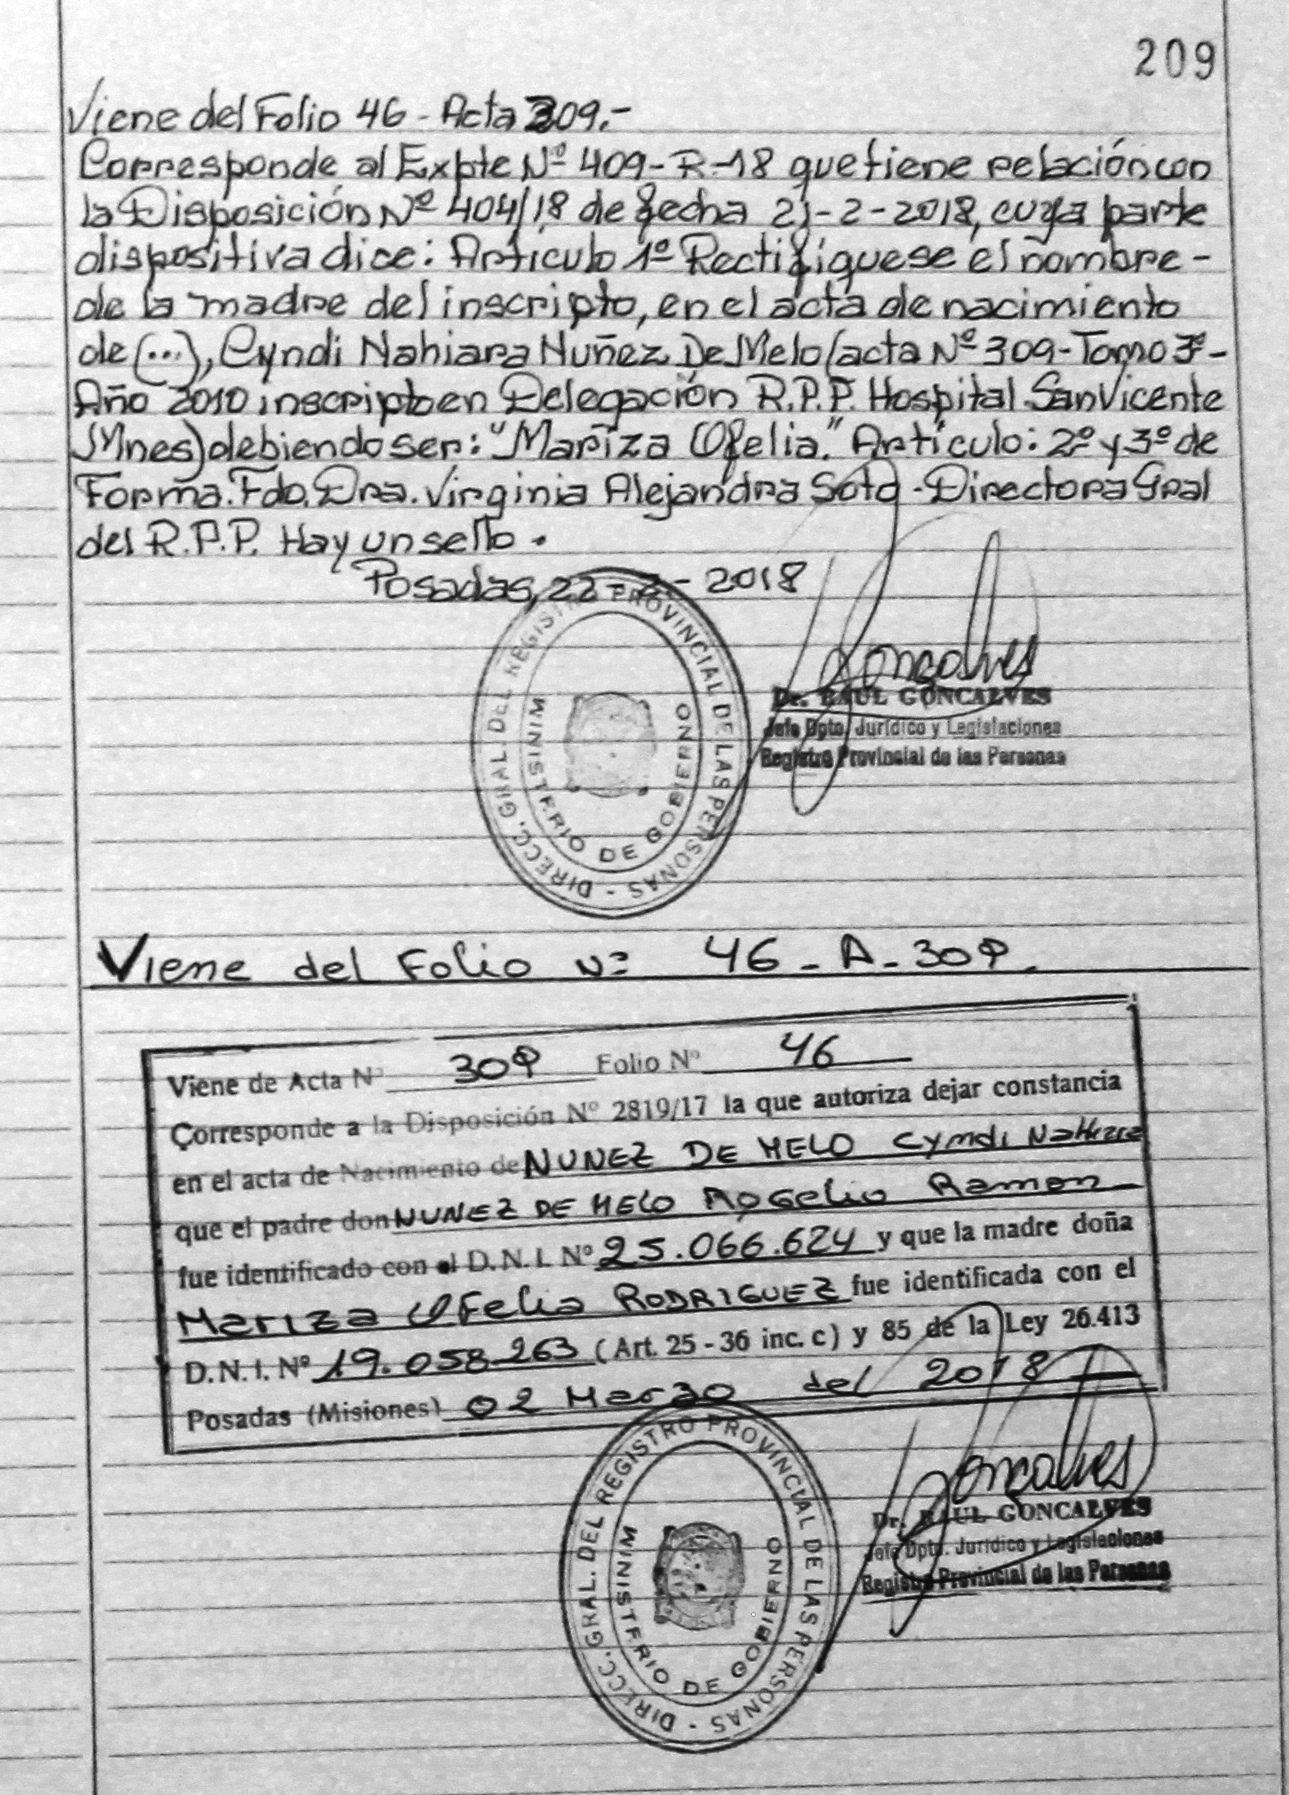 209
Viene del Folio 46 - Acta 309.-
Corresponde al Expte Nº 409-R-18 que tiene relación con
la Disposición Nº 404/18 de fecha 21-2-2018, cuya parte
dispositiva dice: Artículo 1º Rectifíquese el nombre -
de la madre del inscripto, en el acta de nacimiento
de (...), Cyndi Nahiara Nuñez De Melo (acta Nº 309-Tomo 3º-
Año 2010 inscripto en Delegación R.P.P. Hospital San Vicente
Mnes) debiendo ser: "Mariza Ofelia." Artículo: 2º y 3º de
Forma. Fdo. Dra. Virginia Alejandra Soto - Directora Gral
del R.P.P. Hay un sello.
Posadas, 22-2-2018
DIRECC. GRAL. DEL REGISTRO PROVINCIAL DE LAS PERSONAS -
MINISTERIO DE GOBIERNO
Goncalves
Dr. RAUL GONCALVES
Jefe Dpto. Jurídico y Legislaciones
Registro Provincial de las Personas
Viene del Folio Nº 46 - A - 309.
Viene de Acta Nº 309 Folio Nº 46
Corresponde a la Disposición Nº 2819/17 la que autoriza dejar constancia
en el acta de Nacimiento de NUNEZ DE MELO Cyndi Nahiara
que el padre don NUNEZ DE MELO Rogelio Ramon
fue identificado con el D.N.I. Nº 25.066.624 y que la madre doña
Mariza Ofelia RODRIGUEZ fue identificada con el
D.N.I. Nº 19.058.263 (Art. 25 - 36 inc. c) y 85 de la Ley 26.413
Posadas (Misiones) 02 Marzo del 2018
DIRECC. GRAL. DEL REGISTRO PROVINCIAL DE LAS PERSONAS -
MINISTERIO DE GOBIERNO
Goncalves
Dr. RAUL GONCALVES
Jefe Dpto. Jurídico y Legislaciones
Registro Provincial de las Personas